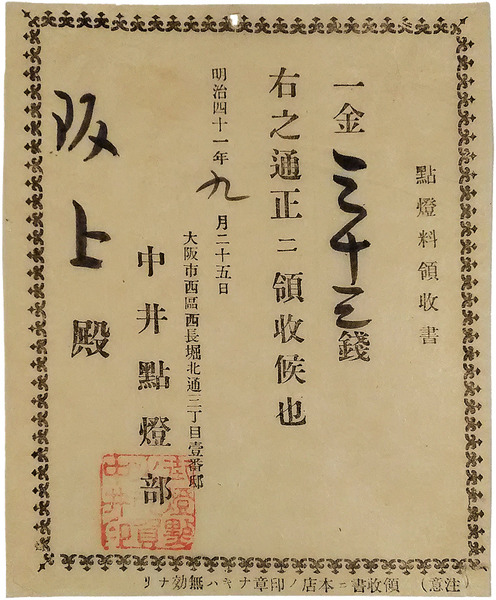 點燈料領收書
一金三十三錢
右之通正ニ領收候也
明治四十一年九月二十五日
大阪市西區西長堀北通三丁目壹番邸
中井點燈部
阪上殿
(注意)領收書ニ本店ノ印章ナキハ無効ナリ